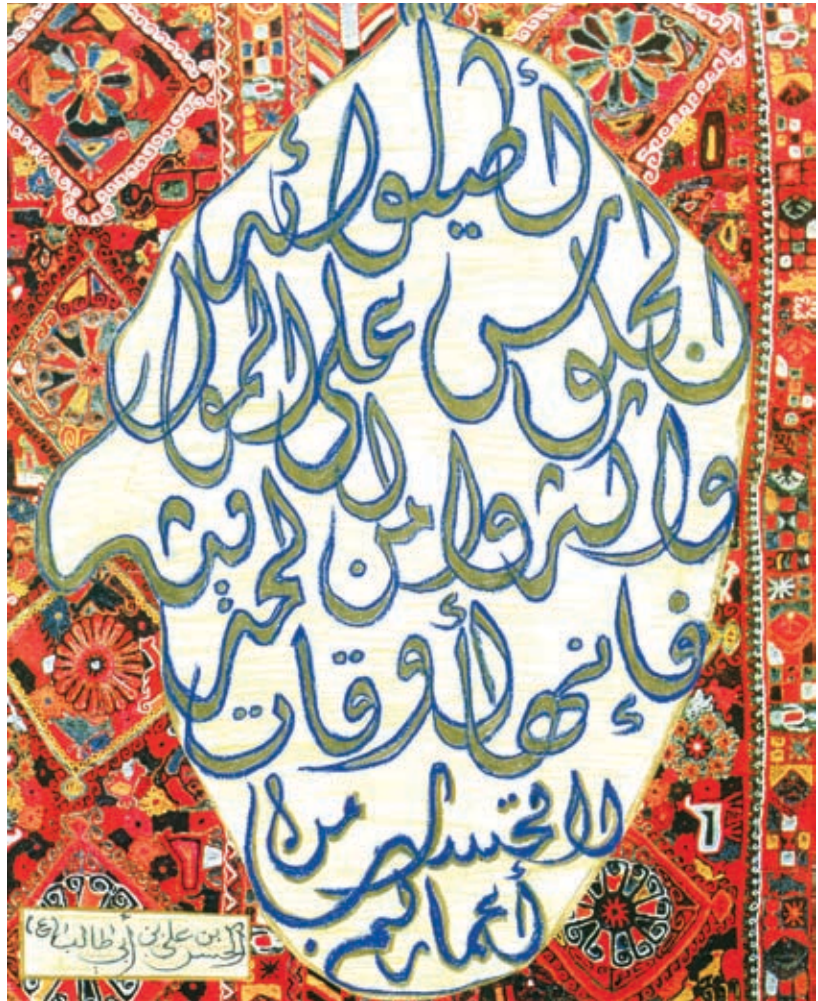 أطيلوا
الجلوس على الموائد
واكثروا من الحديث
فإنها أوقات
لا تحتسب من
أعماركم
الحسن بن علي بن أبي طالب (ع)